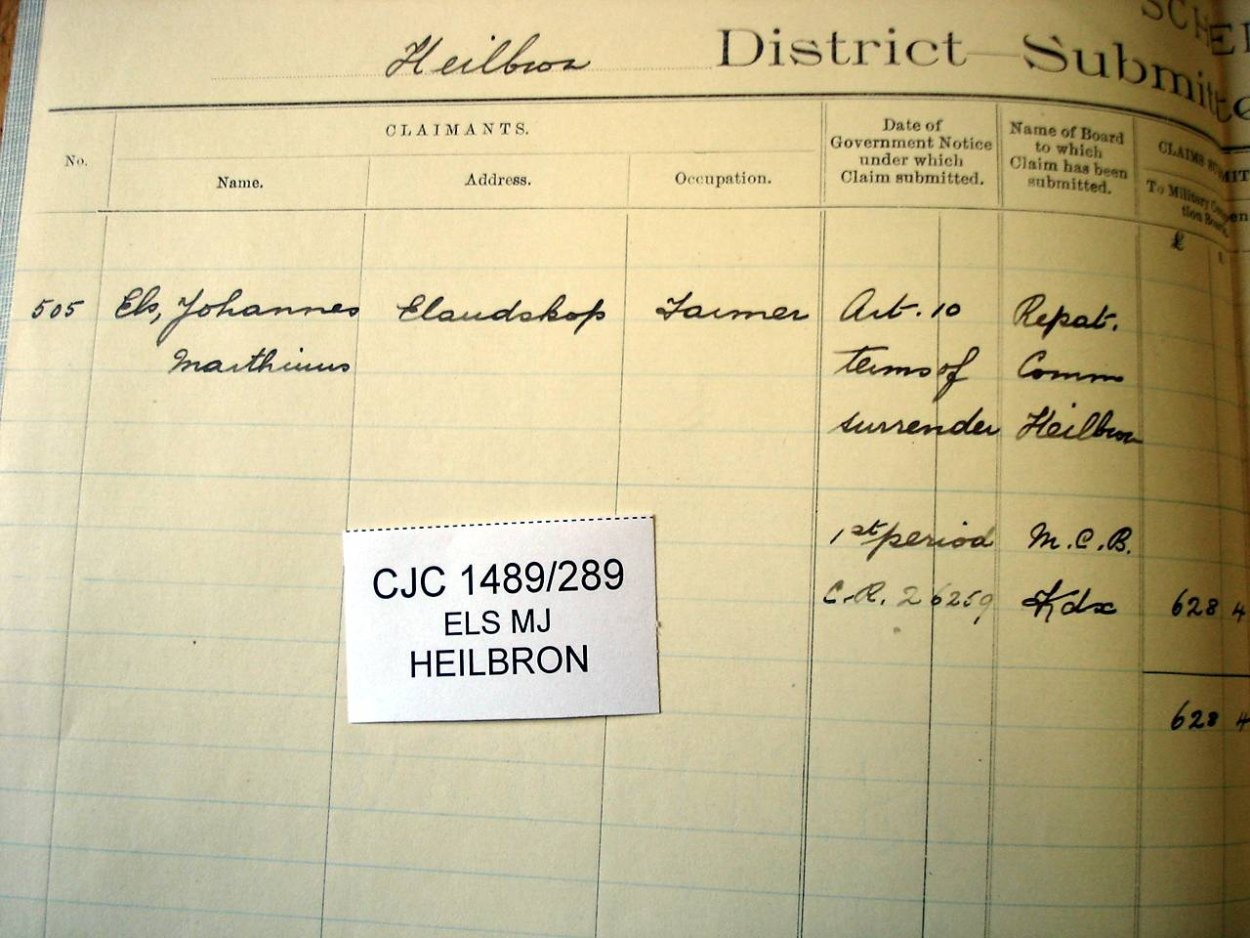 SCHE
Heilbron District Submitte
CLAIMANTS.
No.
Name.
Address.
Occupation.
Date of
Government Notice
under which
Claim submitted.
Name of Board
to which
Claim has been
submitted.
CLAIMS
To Military
tion Board.
£
505 Els, Johannes Elandskop Farmer Art. 10 Repat.
Marthinus terms of Comm
surrender Heilbron
1st period M.C.B.
C.R. 26259 Kdx 628 4
628 4
CJC 1489/289
ELS MJ
HEILBRON